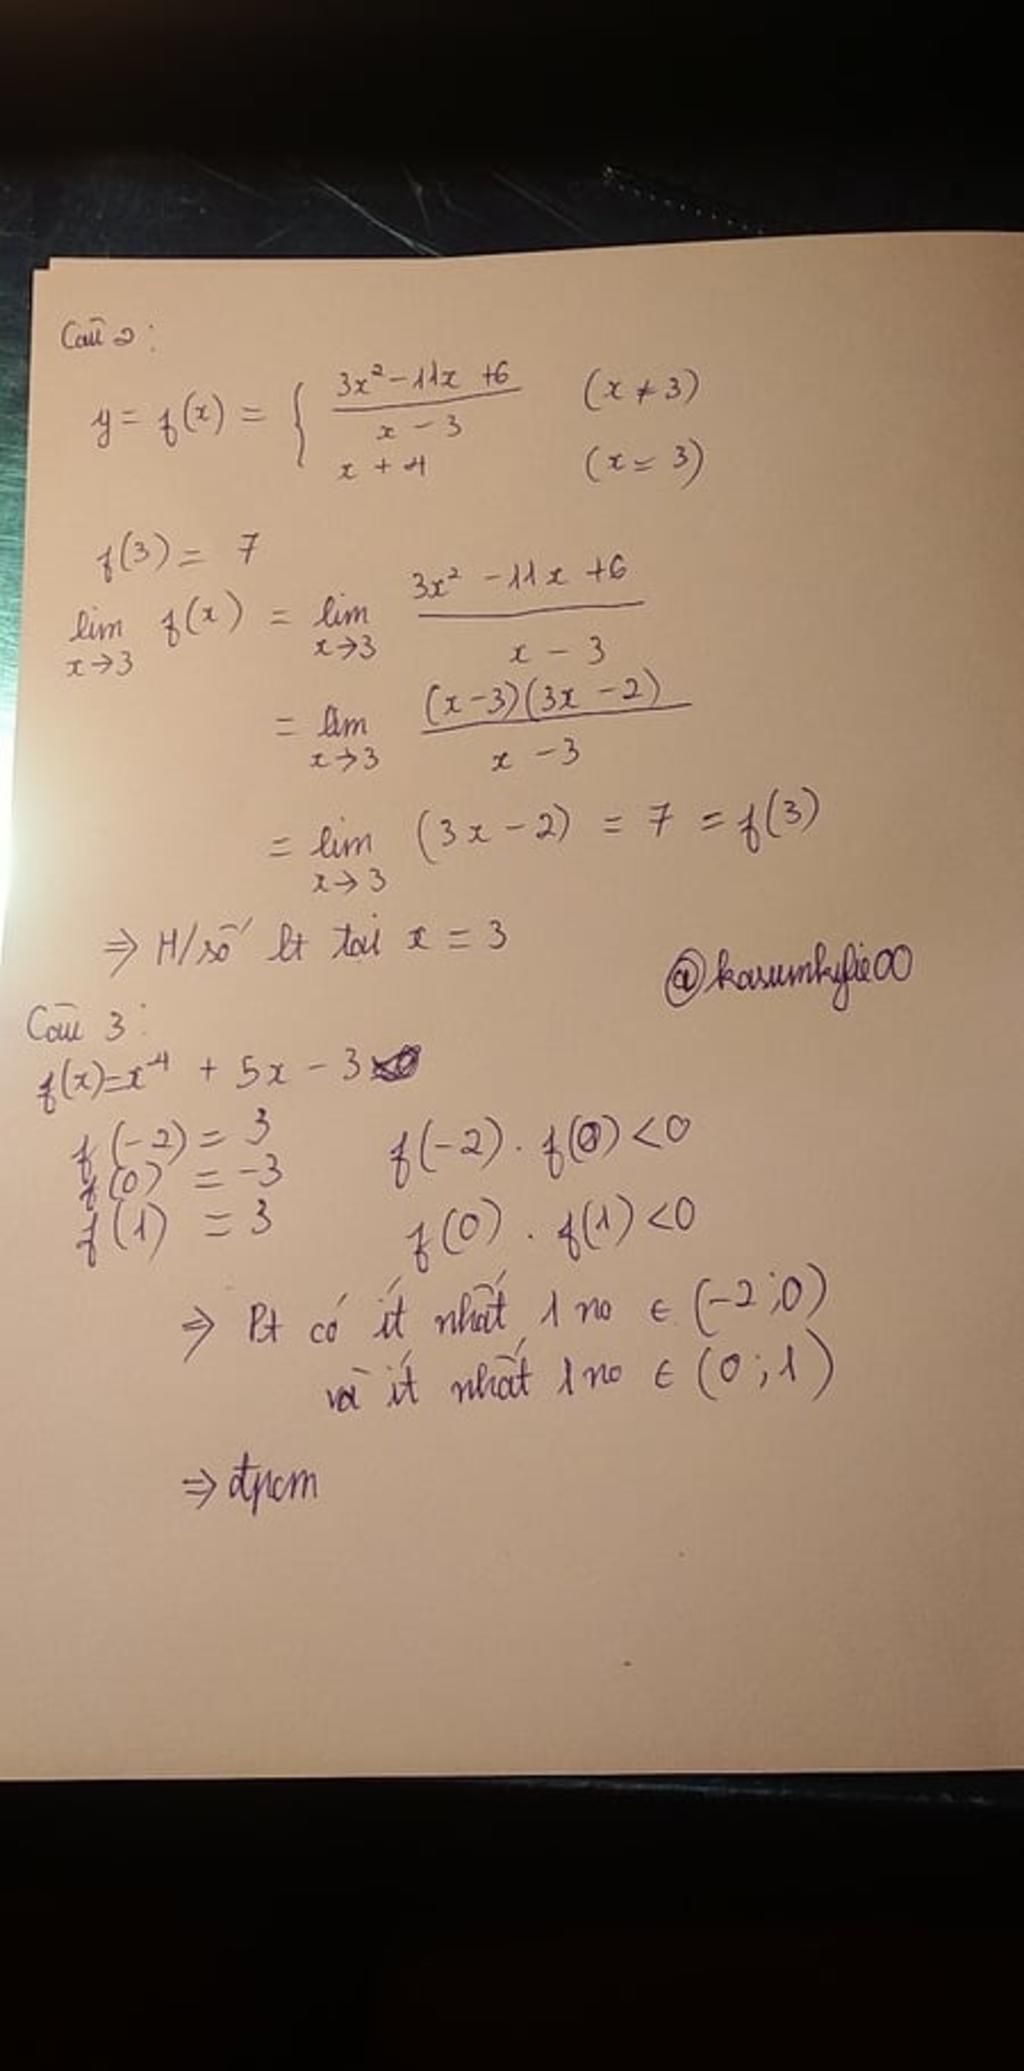 Câu 2:
y = f(x) = { (3x² - 11x + 6)/(x - 3) (x ≠ 3)
x + 4 (x = 3)
f(3) = 7
lim x→3 f(x) = lim x→3 (3x² - 11x + 6)/(x - 3)
= lim x→3 (x-3)(3x-2)/(x - 3)
= lim x→3 (3x - 2) = 7 = f(3)
⇒ H/số lt tại x = 3
@kasumkylie00
Câu 3:
f(x) = x⁴ + 5x - 3
f(-2) = 3 f(-2) . f(0) < 0
f(0) = -3
f(1) = 3 f(0) . f(1) < 0
⇒ Pt có ít nhất 1 no ∈ (-2;0)
và ít nhất 1 no ∈ (0;1)
⇒ đpcm